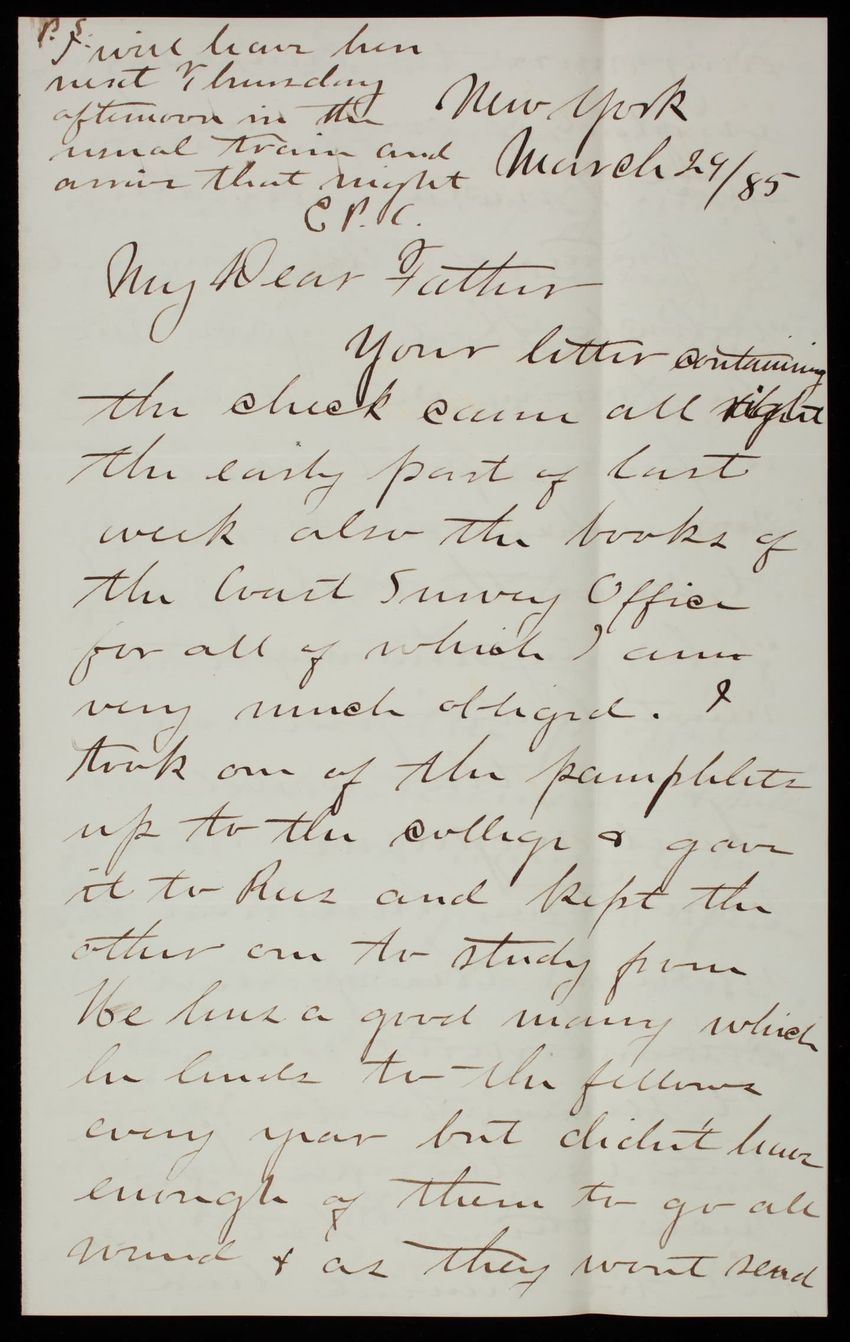 P. S.
I will leave here
next Thursday
afternoon in the
usual train and
arrive that night
E P. C.
New York
March 29/85
My Dear Father
Your letter containing
the check came all right
the early part of last
week also the books of
the Coast Survey Office
for all of which I am
very much obliged. I
took one of the pamphlets
up to the college & gave
it to Rees and kept the
other one to study from
He has a good many which
he lends to the fellows
every year but didn't have
enough of them to go all
round & as they wont send